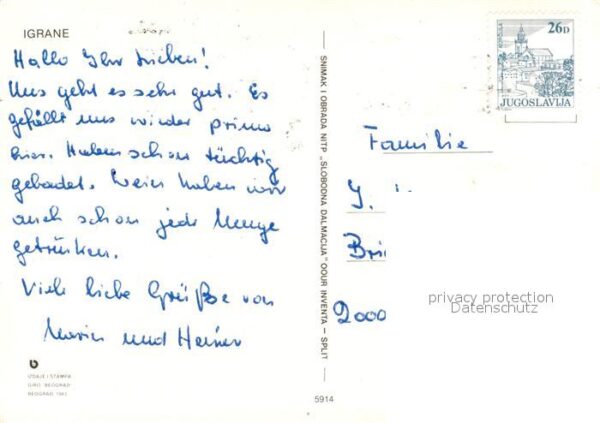 IGRANE
Hallo Ihr Lieben!
Uns geht es sehr gut. Es
gefällt uns wieder prima
hier. Haben schon tüchtig
gebadet. Wein haben wir
auch schon jede Menge
getrunken.
Viele liebe Grüße von
Marion und Heiner
IZDAJE I ŠTAMPA
GIRO BEOGRAD
BEOGRAD
SNIMAK I OBRADA NITP „SLOBODNA DALMACIJA" OOUR INVENTA – SPLIT
5914
KORČULA
26D
JUGOSLAVIJA
Familie
2000
privacy protection
Datenschutz